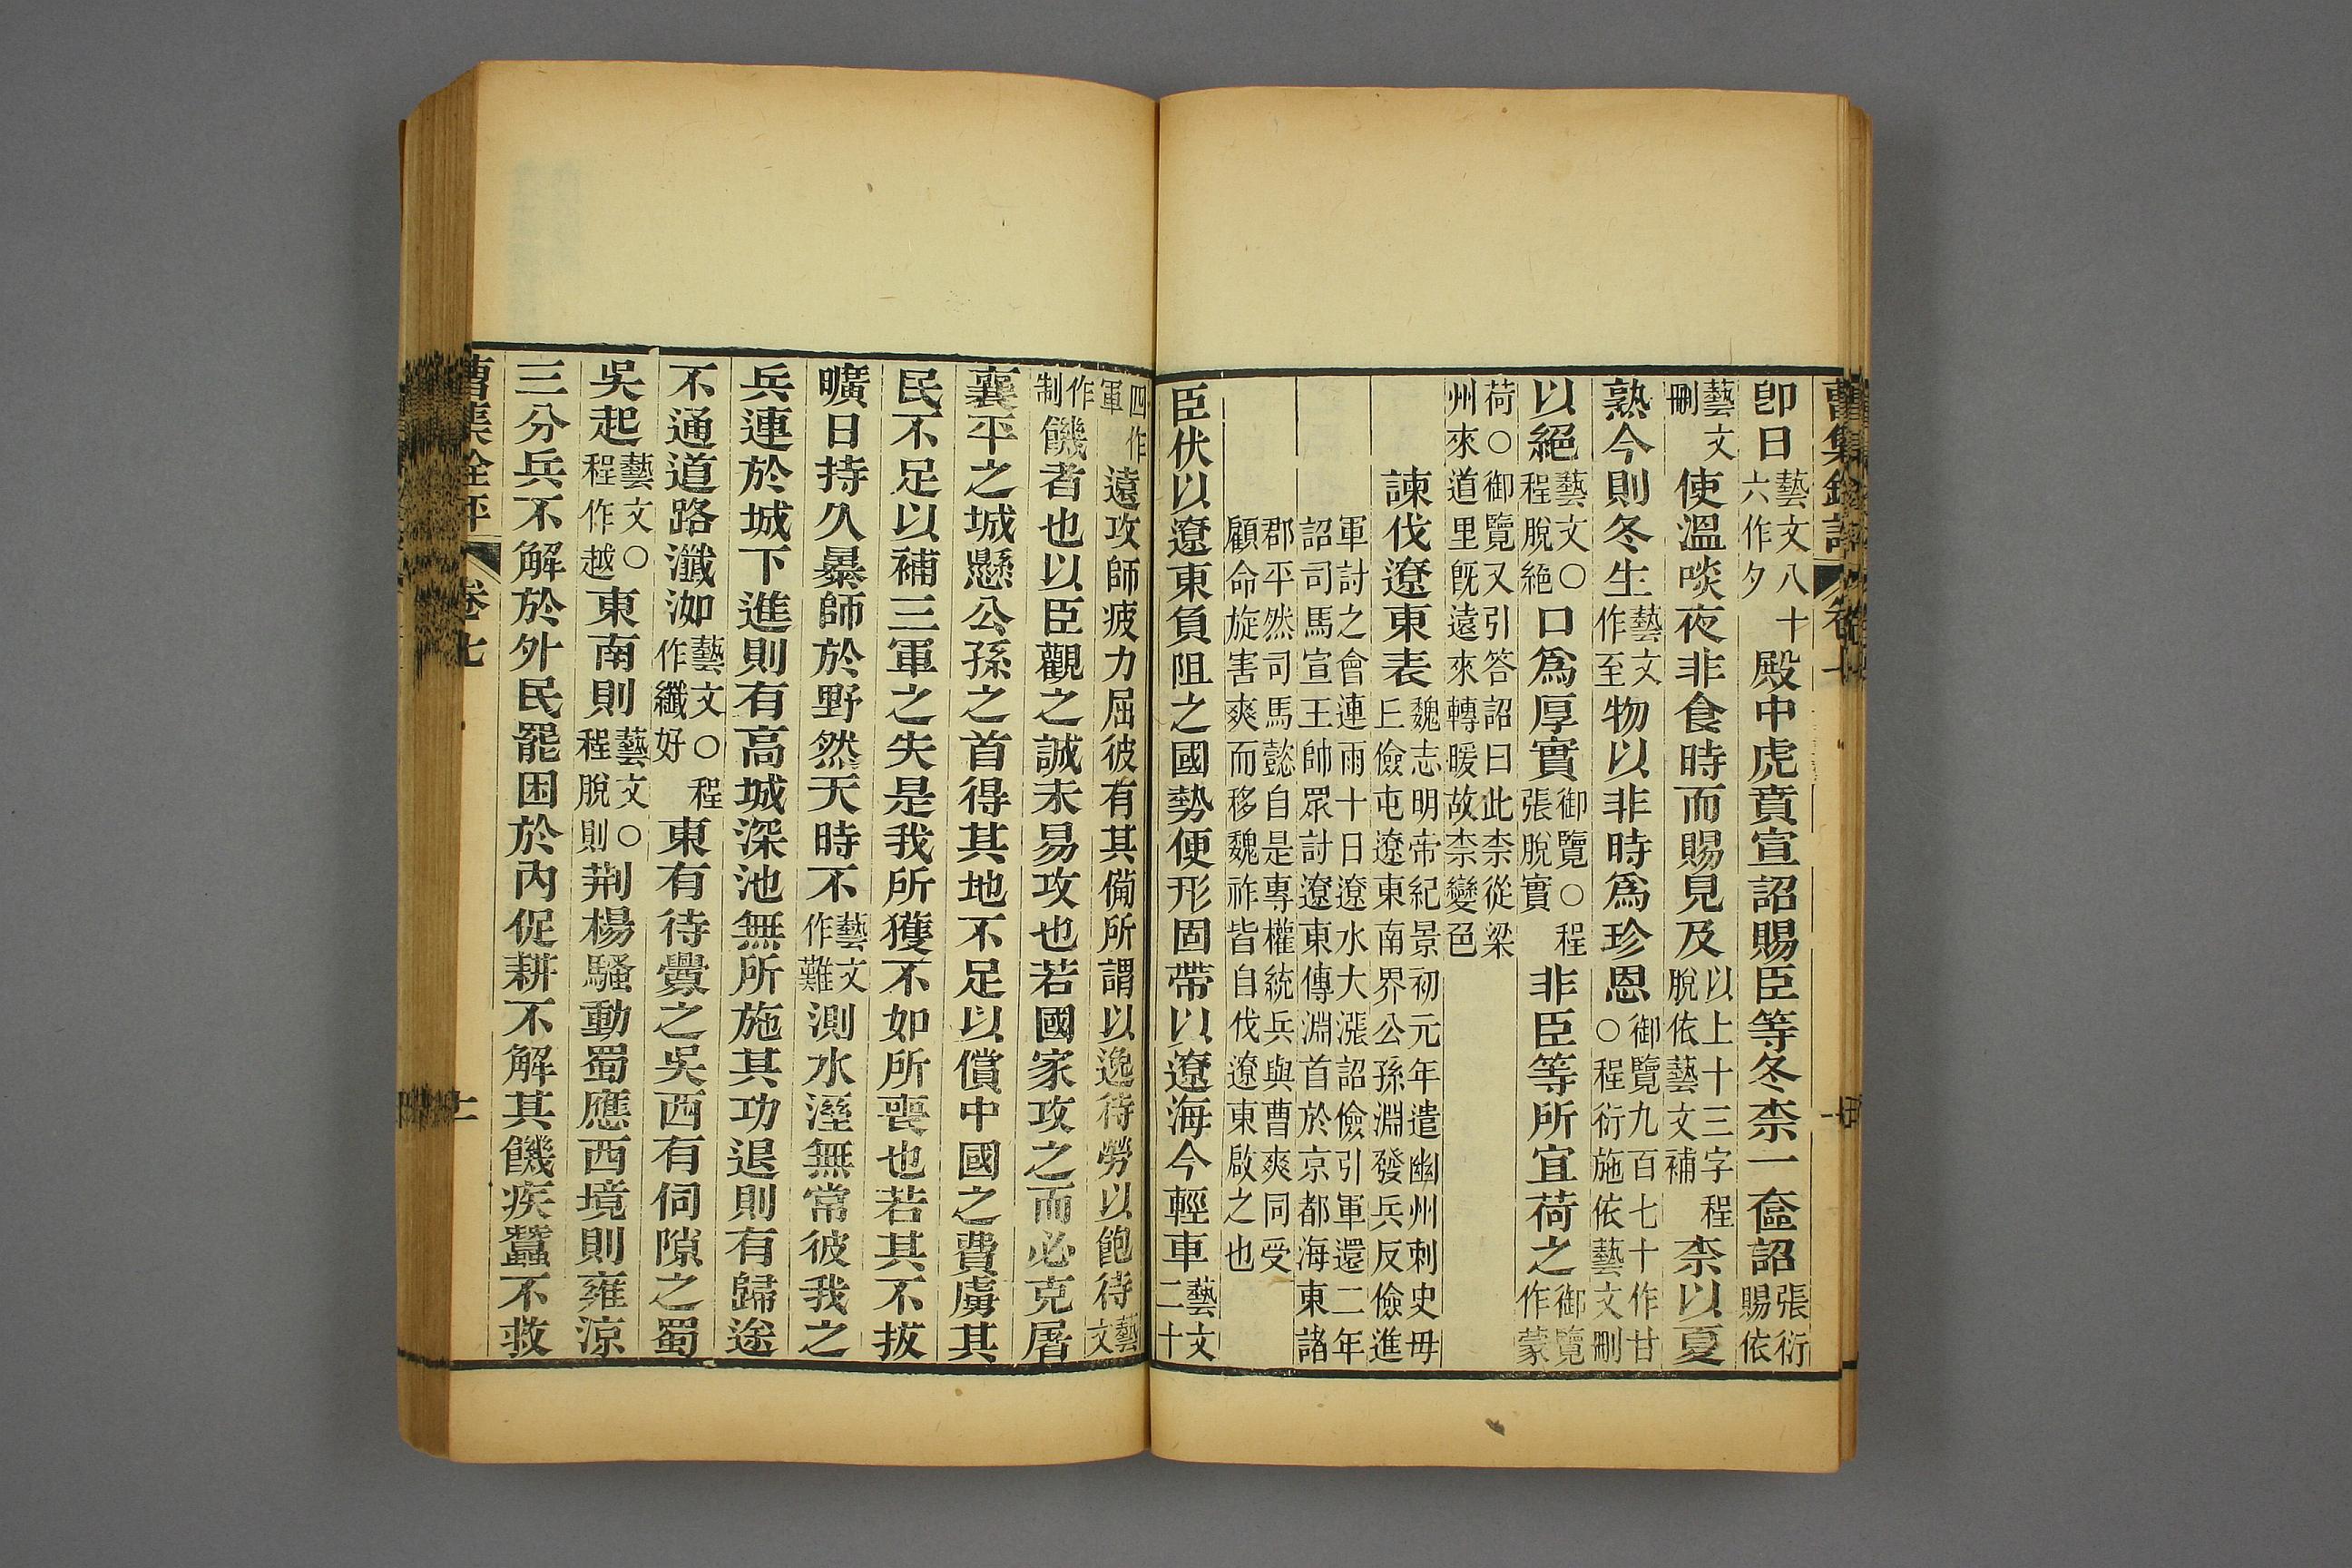 曹集銓評 卷七
卽日藝文八十六作夕殿中虎賁宣詔賜臣等冬柰一奩詔張衍賜依
藝文刪使溫啖夜非食時而賜見及以上十三字程脫依藝文補柰以夏
熟今則冬生藝文作至物以非時爲珍恩御覽九百七十作甘○程衍施依藝文刪
以絕藝文○程脫絕口爲厚實御覽○程張脫實非臣等所宜荷之御覽作蒙
荷○御覽又引答詔曰此柰從梁州來道里旣遠來轉暖故柰變色
諫伐遼東表魏志明帝紀景初元年遣幽州刺史毋丘儉屯遼東南界公孫淵發兵反儉進
軍討之會連雨十日遼水大漲詔儉引軍還二年詔司馬宣王帥眾討遼東傳淵首於京都海東諸
郡平然司馬懿自是專權統兵與曹爽同受顧命旋害爽而移魏祚皆自伐遼東啟之也
臣伏以遼東負阻之國勢便形固帶以遼海今輕車藝文二十
四作軍遠攻師疲力屈彼有其備所謂以逸待勞以飽待藝文
作制饑者也以臣觀之誠未易攻也若國家攻之而必克屠
襄平之城懸公孫之首得其地不足以償中國之費虜其
民不足以補三軍之失是我所獲不如所喪也若其不拔
曠日持久暴師於野然天時不藝文作難測水溼無常彼我之
兵連於城下進則有高城深池無所施其功退則有歸途
不通道路瀸洳藝文○程作纖好東有待釁之吳西有伺隙之蜀
吳起藝文○程作越東南則藝文○程脫則荆楊騷動蜀應西境則雍涼
三分兵不解於外民罷困於內促耕不解其饑疾蠶不救
曹集銓評 卷七